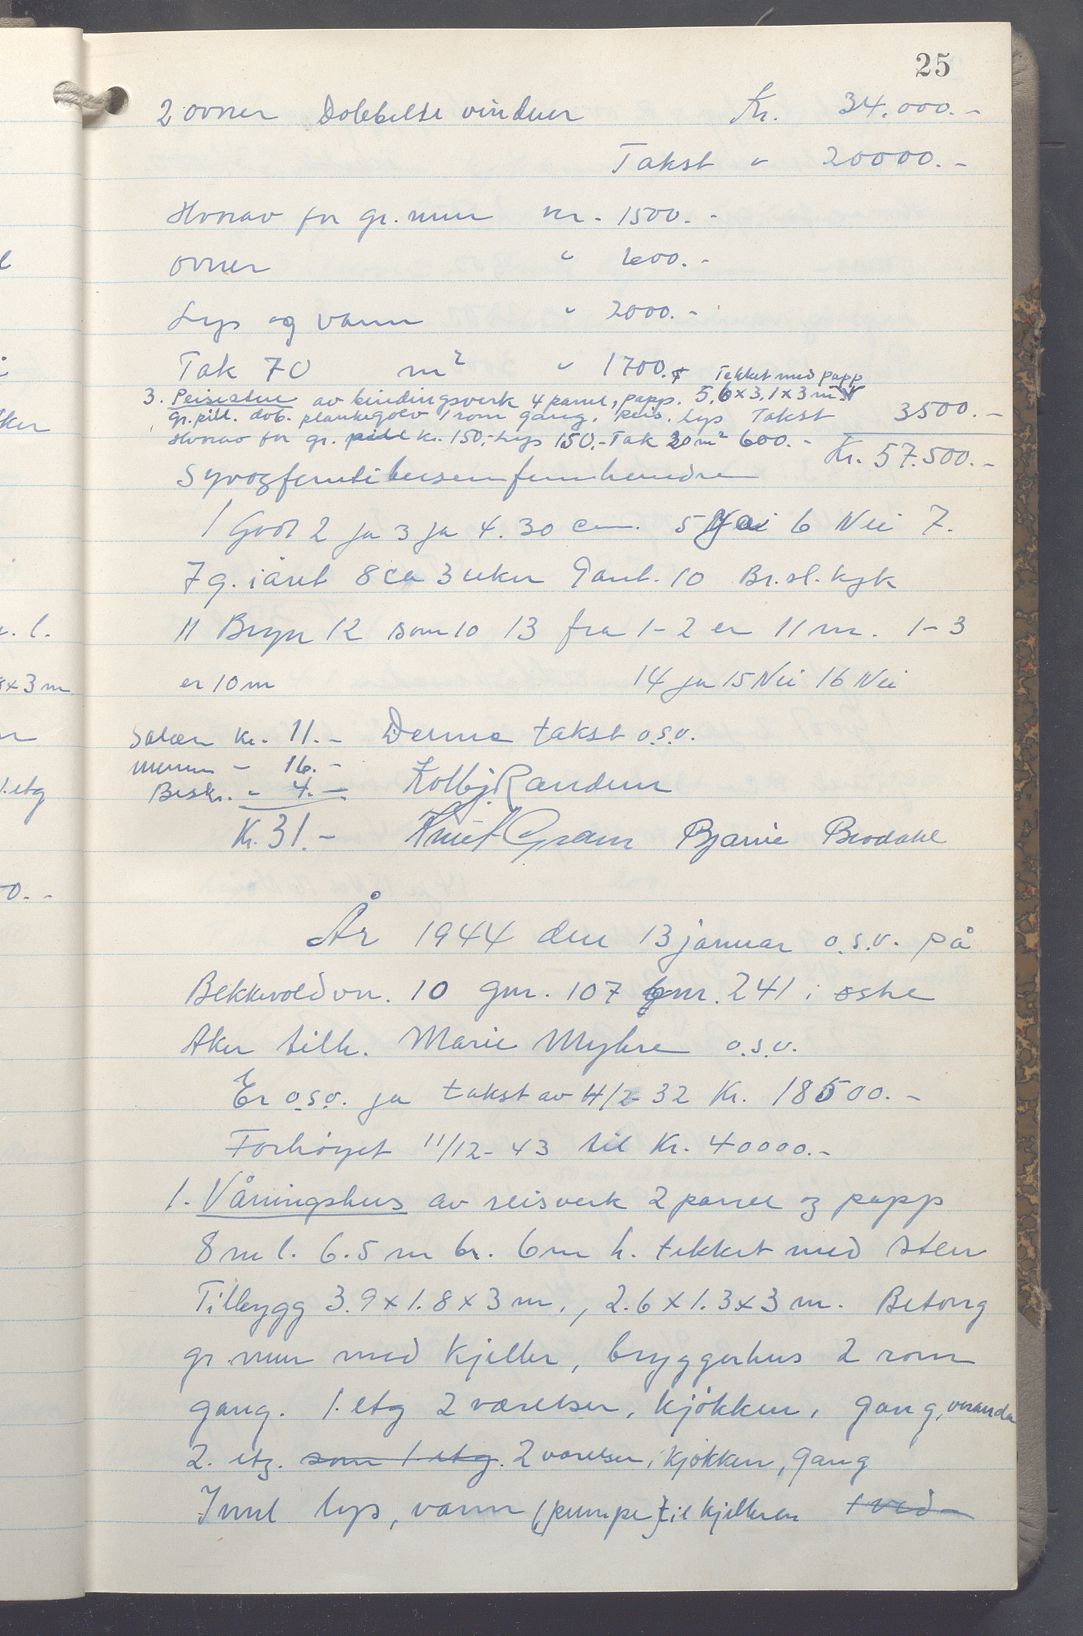 25
2 ovner Dobbelte vinduer Kr. 34.000.-
Takst " 20000.-
Hvorav for gr. mur kr. 1500.-
ovner " 600.-
Lys og vann " 2000.-
Tak 70 m² " 1700.- Tekket med papp
3. Peisestue av bindingsverk 4 panel, papp. 5,6x3,1x3 m.
gr. pill. dob. plankegolv 1 rom gang, peis, lys Takst 3500.-
Hvorav for gr. pill kr. 150,- Lys 150,- Tak 20 m² 600.-
Kr. 57.500.-
Syvogfemtitusenfemhundre
1 God 2 ja 3 ja 4. 30 cm. 5 6 Nei 7.
7 g. i året 8 ca 3 uker 9 ant. 10 Br.sl.
11 Bryn 12 som 10 13 fra 1-2 er 11 m. 1-3
er 10 m 14 ja 15 Nei 16 Nei
Salær kr. 11.- Denne takst o.s.v.
- 16.-
Beskr. " 4.- Kolbj Randem
Kr. 31.- Knut Gram Bjarne Brodahl
År 1944 den 13 januar o.s.v. på
Bekkevoldvn. 10 gnr. 107 bnr. 241 i østre
Aker tilh. Marie Myhre o.s.v.
Er o.s.v. ja takst av 4/2-32 Kr. 18500.-
Forhøyet 11/12-43 til Kr. 40000.-
1. Våningshus av reisverk 2 panel og papp
8 m l. 6.5 m br. 6 m h. tekket med sten
Tilbygg 3.9x1.8x3 m., 2.6x1.3x3 m. Betong
gr. mur med kjeller, bryggerhus 2 rom
gang. 1. etg 2 værelser, kjøkken, gang, veranda
2. etg. som 1 etg. 2 værelser, kjøkken, gang
Innl lys, vann (pumpe) til kjelleren 1 ved